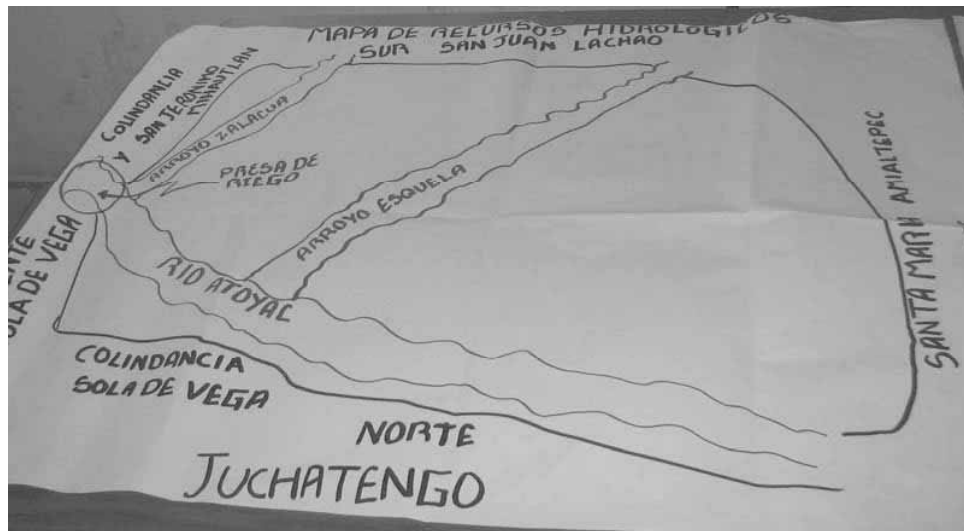 MAPA DE RECURSOS HIDROLOGICOS
SUR SAN JUAN LACHAO
COLINDANCIA
Y SAN JERONIMO
ARROYO ZALACUA
PRESA DE
RIEGO
ARROYO ESQUELA
SANTA MARIA AMIALTEPEC
SOLA DE VEGA
RIO ATOYAC
COLINDANCIA
SOLA DE VEGA
NORTE
JUCHATENGO